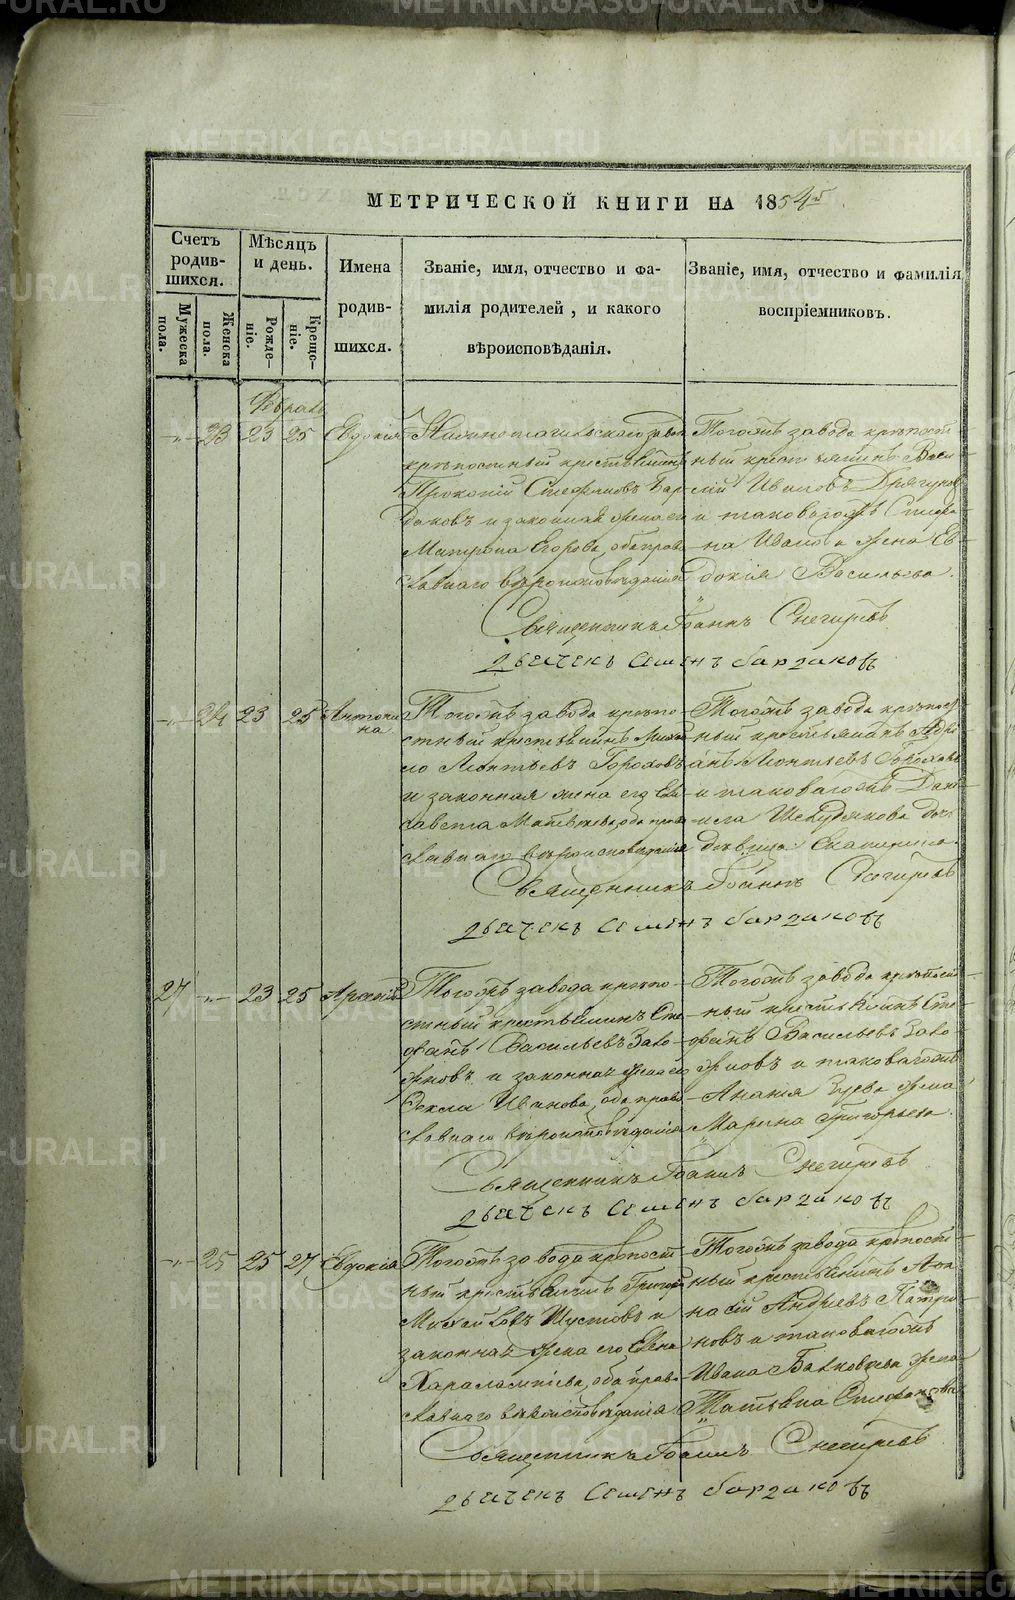 МЕТРИЧЕСКОЙ КНИГИ НА 1854й
Счетъ родив-шихся.
Мѣсяцъ и день.
Имена родив-шихся.
Званіе, имя, отчество и фа-
милія родителей, и какого
вѣроисповѣданія.
Званіе, имя, отчество и фамилія
воспріемниковъ.
Мужеска пола.
Женска пола.
Рожде-ніе.
Креще-ніе.
Февраль
23 23 25 Евдокія
Нижнетагильскаго завода
крѣпостный крестьянинъ
Прокопій Стефановъ Бар-
даковъ и законная жена его
Матрона Егорова, оба право-
славнаго вѣроисповѣданія
Тогожъ завода крѣпост-
ный крестьянинъ Васи-
лій Ивановъ
и таковагожъ Стефа-
на Иванова жена Ев-
докія Васильева.
Священникъ Іоаннъ Снегиревъ
дьячекъ Семенъ бардаковъ
24 23 25 Антонина
Тогожъ завода крѣпо-
стный крестьянинъ Михаи-
ло Леонтьевъ Гороховъ
и законная жена его Ели-
савета Матвѣева, оба право-
славнаго вѣроисповѣданія
Тогожъ завода крѣпост-
ный крестьянинъ Адрі-
анъ Леонтьевъ Гороховъ
и таковагожъ Дани-
ила дочь
дѣвица Екатерина.
Священникъ Іоаннъ Снегиревъ
дьячекъ Семенъ бардаковъ
27 23 25 Арсеній
Тогожъ завода крѣпо-
стный крестьянинъ Сте-
фанъ Васильевъ Заво-
рновъ и законная жена его
Фекла Иванова, оба право-
славнаго вѣроисповѣданія
Тогожъ завода крѣпост-
ный крестьянинъ Сте-
фанъ Васильевъ Заво-
рновъ и таковагожъ
Ананія Зуева жена
Марина Григорьева.
Священникъ Іоаннъ Снегиревъ
дьячекъ Семенъ бардаковъ
25 25 27 Евдокія
Тогожъ завода крѣпост-
ный крестьянинъ Григорій
Михайловъ Шустовъ и
законная жена его Елена
Харалампіева, оба право-
славнаго вѣроисповѣданія
Тогожъ завода крѣпост-
ный крестьянинъ Афа-
насій Андреевъ
новъ и таковагожъ
Ивана жена
Татьяна Стефанова.
Священникъ Іоаннъ Снегиревъ
дьячекъ Семенъ бардаковъ
METRIKI.GASO-URAL.RU